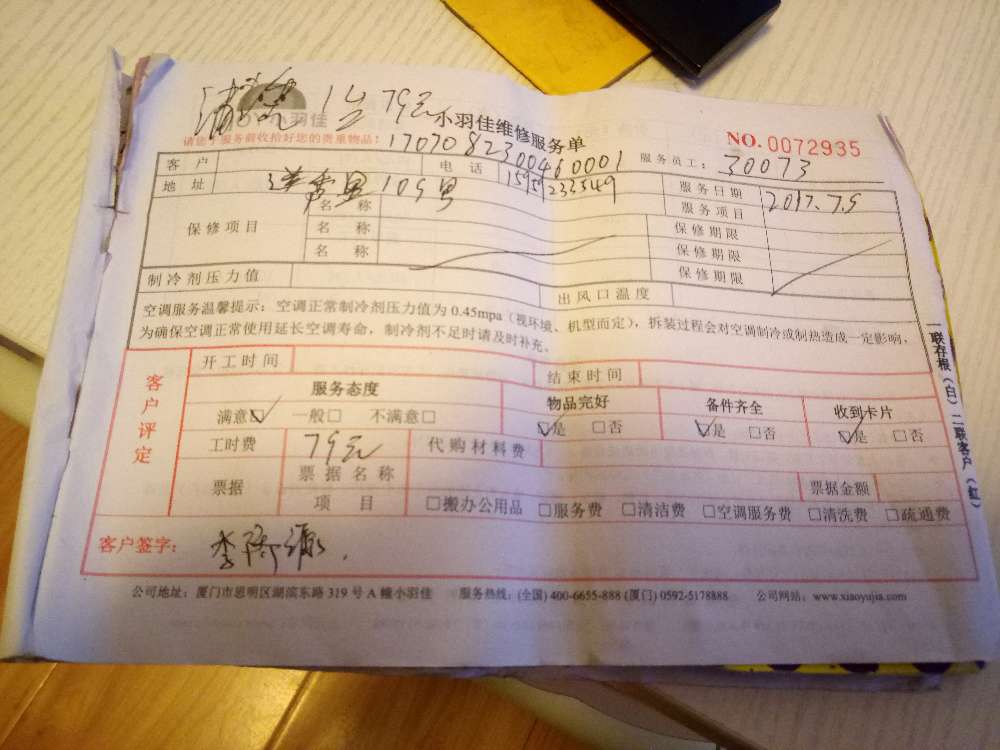 1台 79元
小羽佳
小羽佳维修服务单
请您于服务前收拾好您的贵重物品!
170708230046 0001
NO. 0072935
客户 电话 服务员工: 30073
地址 109号 服务日期 2017.7.9
保修项目 名称 服务项目
名称 保修期限
名称 保修期限
保修期限
制冷剂压力值 出风口温度
空调服务温馨提示:空调正常制冷剂压力值为0.45mpa(视环境、机型而定),拆装过程会对空调制冷或制热造成一定影响,
为确保空调正常使用延长空调寿命,制冷剂不足时请及时补充。
客户评定
开工时间 结束时间
服务态度 物品完好 备件齐全 收到卡片
满意☑ 一般□ 不满意□ ☑是 □否 ☑是 □否 ☑是 □否
工时费 79元 代购材料费
票据 票据名称 票据金额
项目 □搬办公用品 □服务费 □清洁费 □空调服务费 □清洗费 □疏通费
客户签字:
公司地址:厦门市思明区湖滨东路319号A幢小羽佳 服务热线:(全国)400-6655-888(厦门)0592-5178888 公司网站:www.xiaoyujia.com
一联存根(白)二联客户(红)